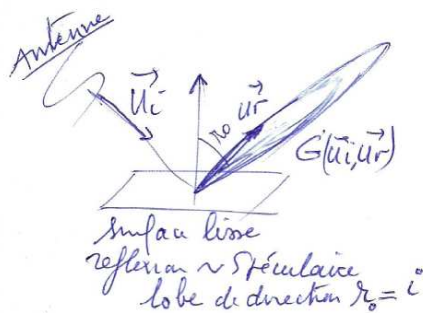 Antenne
u⃗i
r₀ u⃗r
G(u⃗i,u⃗r)
surface lisse
reflexion ~ Spéculaire
lobe de direction r₀ = i